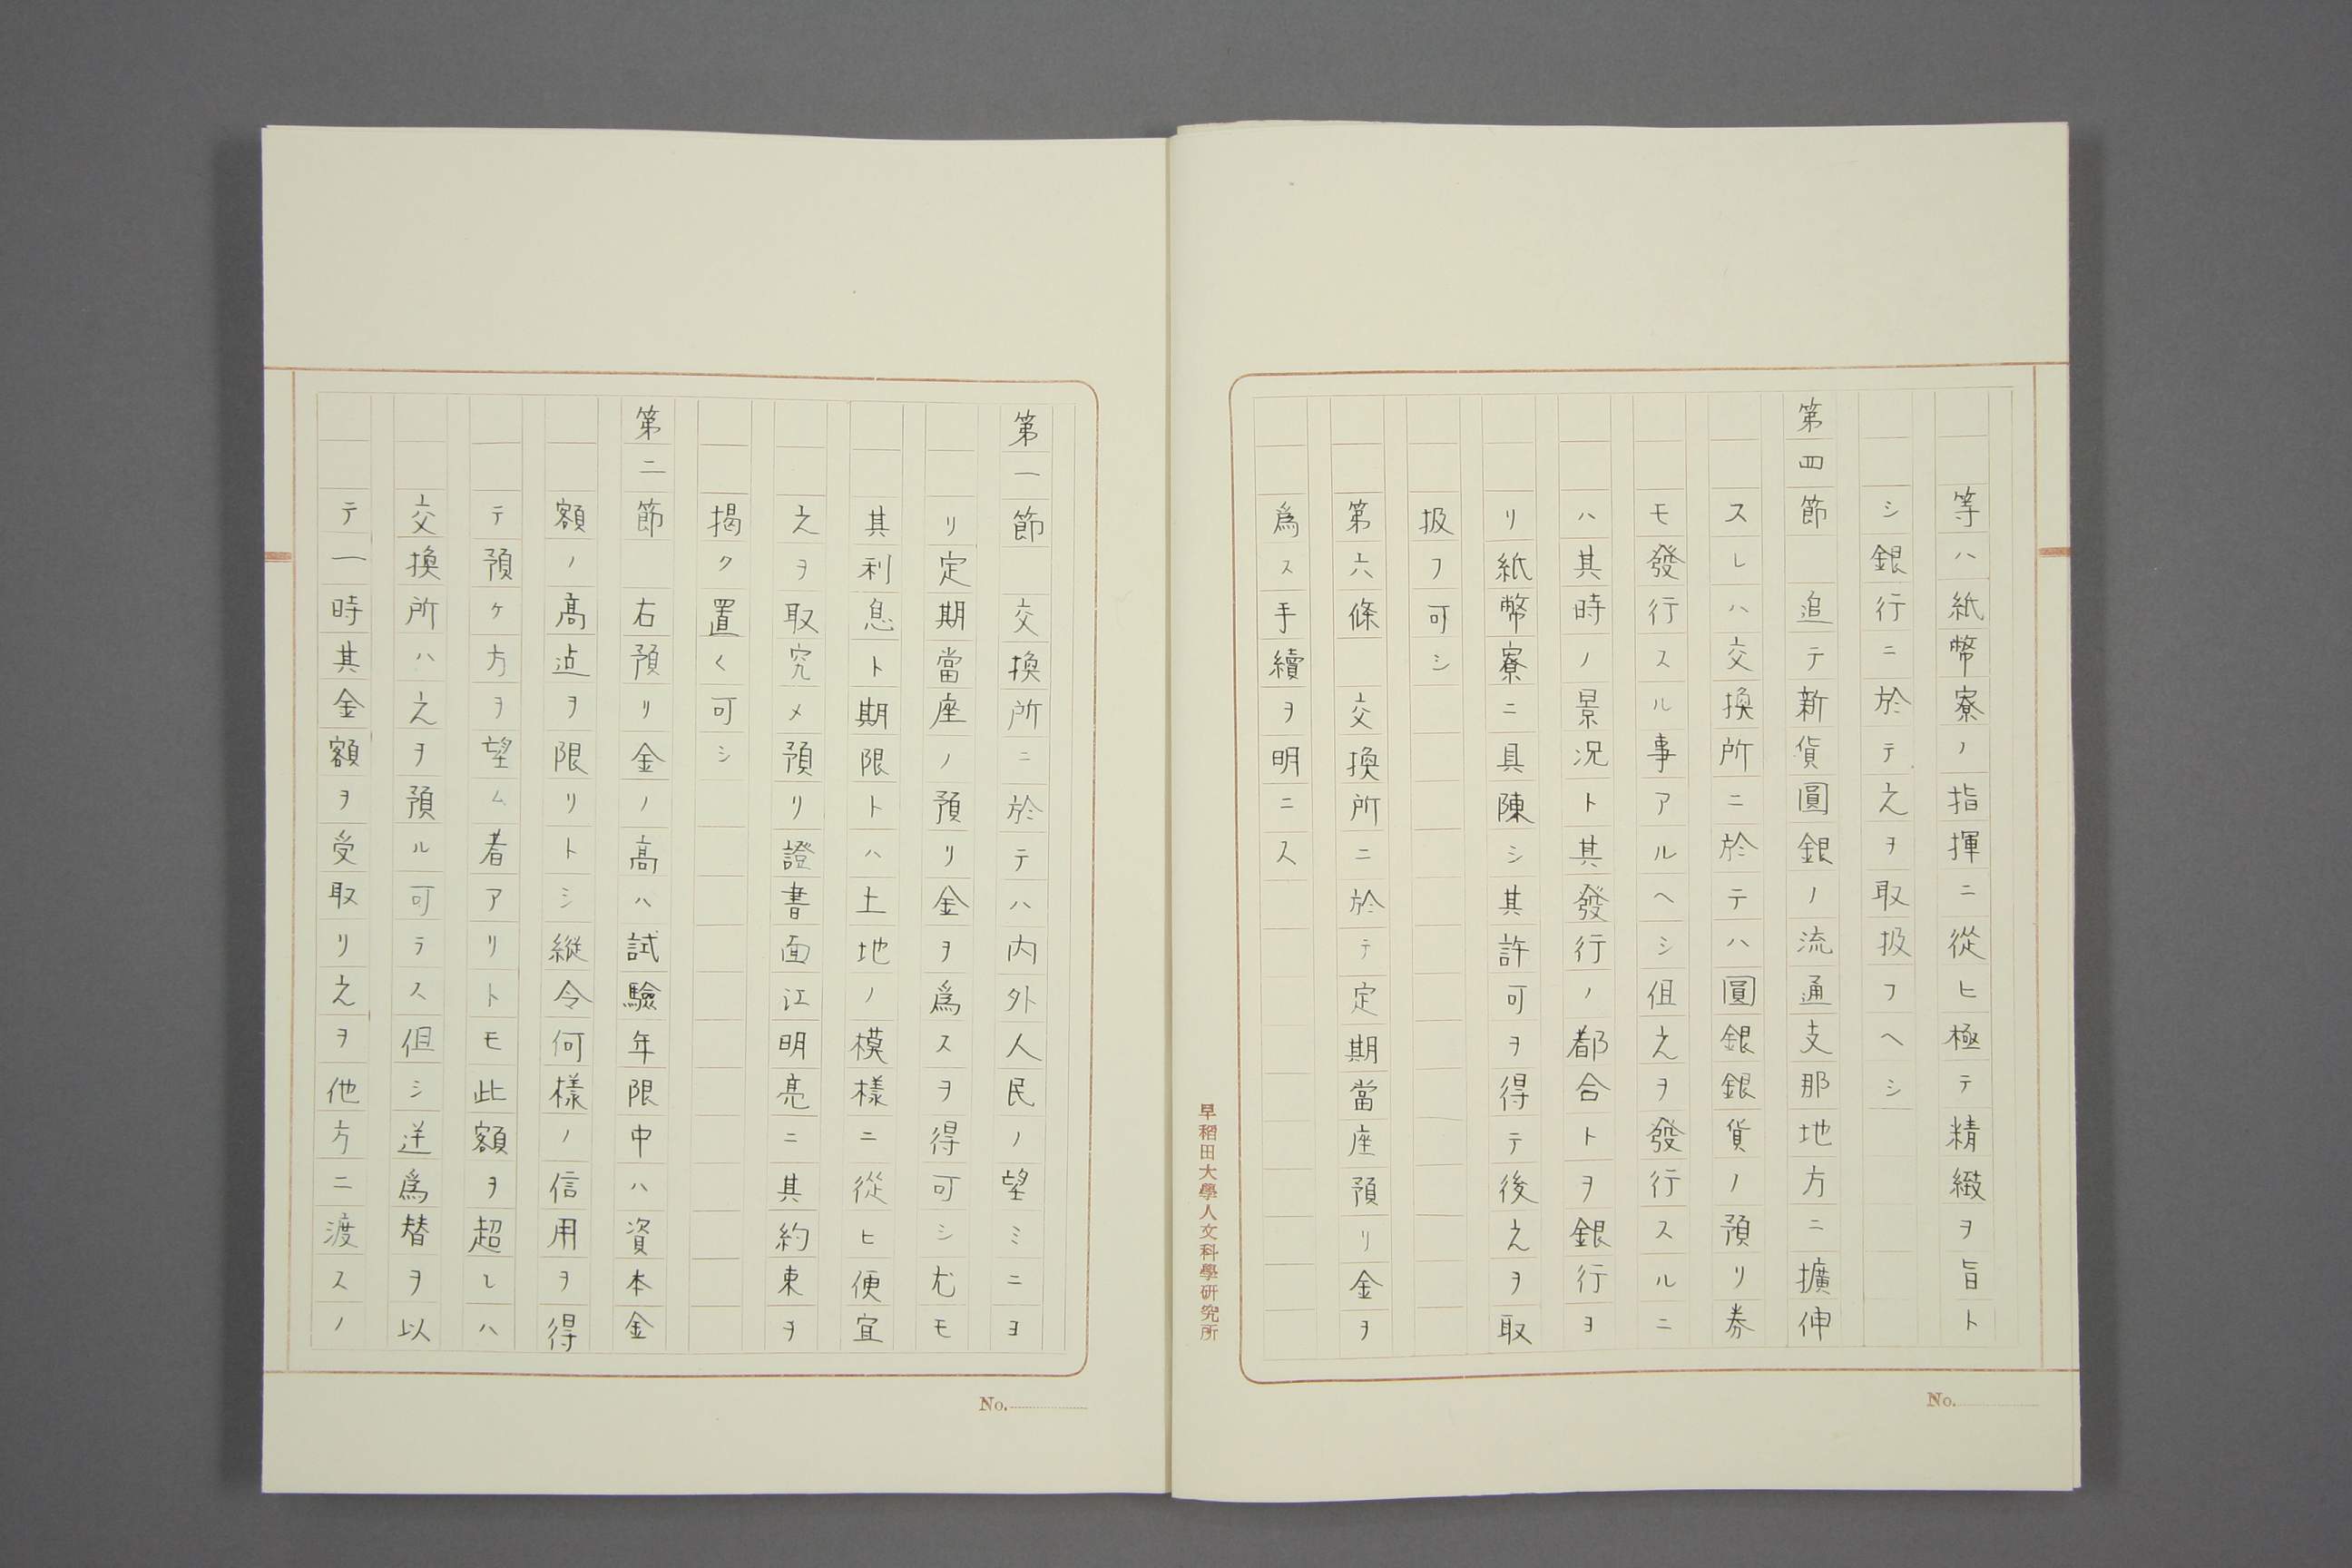 等ハ紙幣寮ノ指揮ニ從ヒ極テ精緻ヲ旨ト
シ銀行ニ於テ之ヲ取扱フヘシ
第四節　追テ新貨圓銀ノ流通支那地方ニ擴伸
スレハ交換所ニ於テハ圓銀銀貨ノ預リ券
モ發行スル事アルヘシ但之ヲ發行スルニ
ハ其時ノ景況ト其發行ノ都合トヲ銀行ヨ
リ紙幣寮ニ具陳シ其許可ヲ得テ後之ヲ取
扱フ可シ
第六條　交換所ニ於テ定期當座預リ金ヲ
爲ス手續ヲ明ニス
早稻田大學人文科學研究所
No.
第一節　交換所ニ於テハ内外人民ノ望ミニヨ
リ定期當座ノ預リ金ヲ爲スヲ得可シ尤モ
其利息ト期限トハ土地ノ模樣ニ從ヒ便宜
之ヲ取究メ預リ證書面江明亮ニ其約束ヲ
掲ク置く可シ
第二節　右預リ金ノ高ハ試驗年限中ハ資本金
額ノ高迠ヲ限リトシ縱令何樣ノ信用ヲ得
テ預ケ方ヲ望ム者アリトモ此額ヲ超レハ
交換所ハ之ヲ預ル可ラス但シ逆爲替ヲ以
テ一時其金額ヲ受取リ之ヲ他方ニ渡スノ
No.